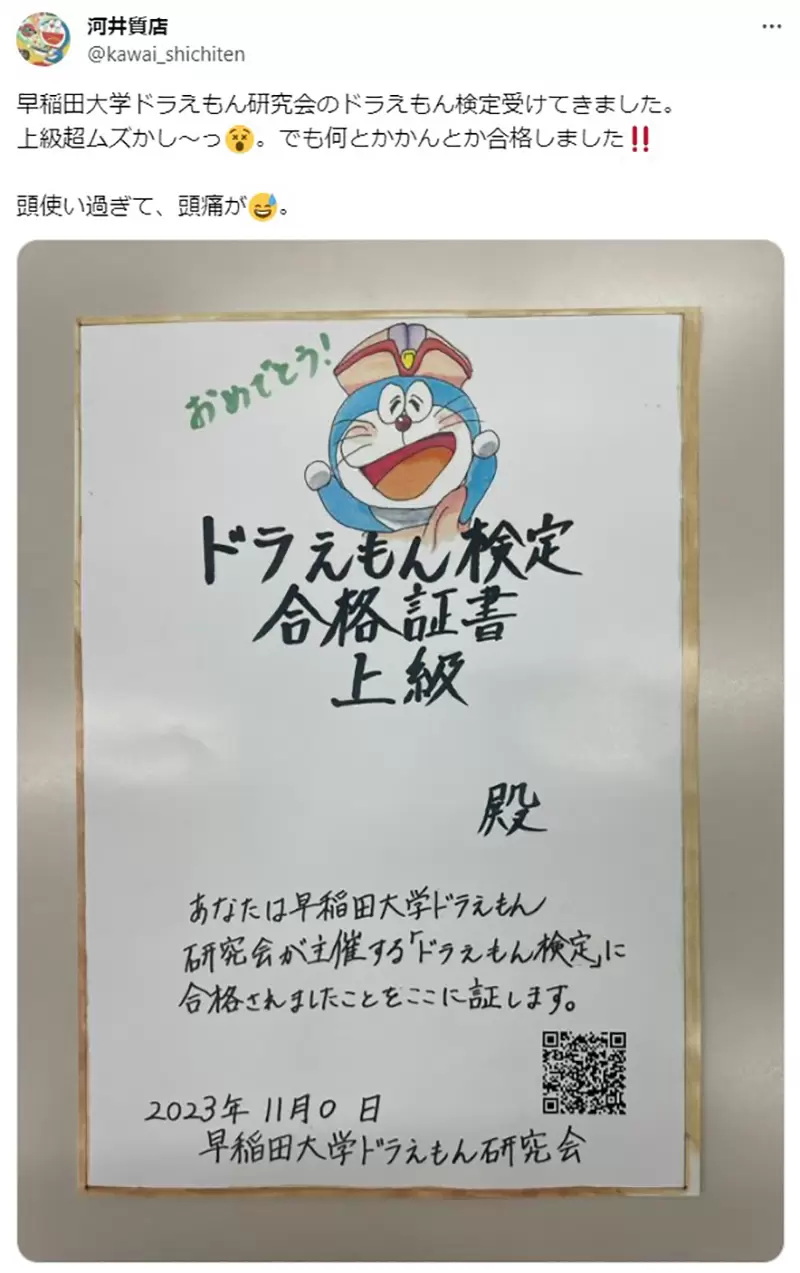 河井質店
@kawai_shichiten
早稲田大学ドラえもん研究会のドラえもん検定受けてきました。
上級超ムズかし〜っ😵。でも何とかかんとか合格しました‼️
頭使い過ぎて、頭痛が😅。
おめでとう!
ドラえもん検定
合格証書
上級
殿
あなたは早稲田大学ドラえもん
研究会が主催する「ドラえもん検定」に
合格されましたことをここに証します。
2023年 11月0日
早稲田大学ドラえもん研究会